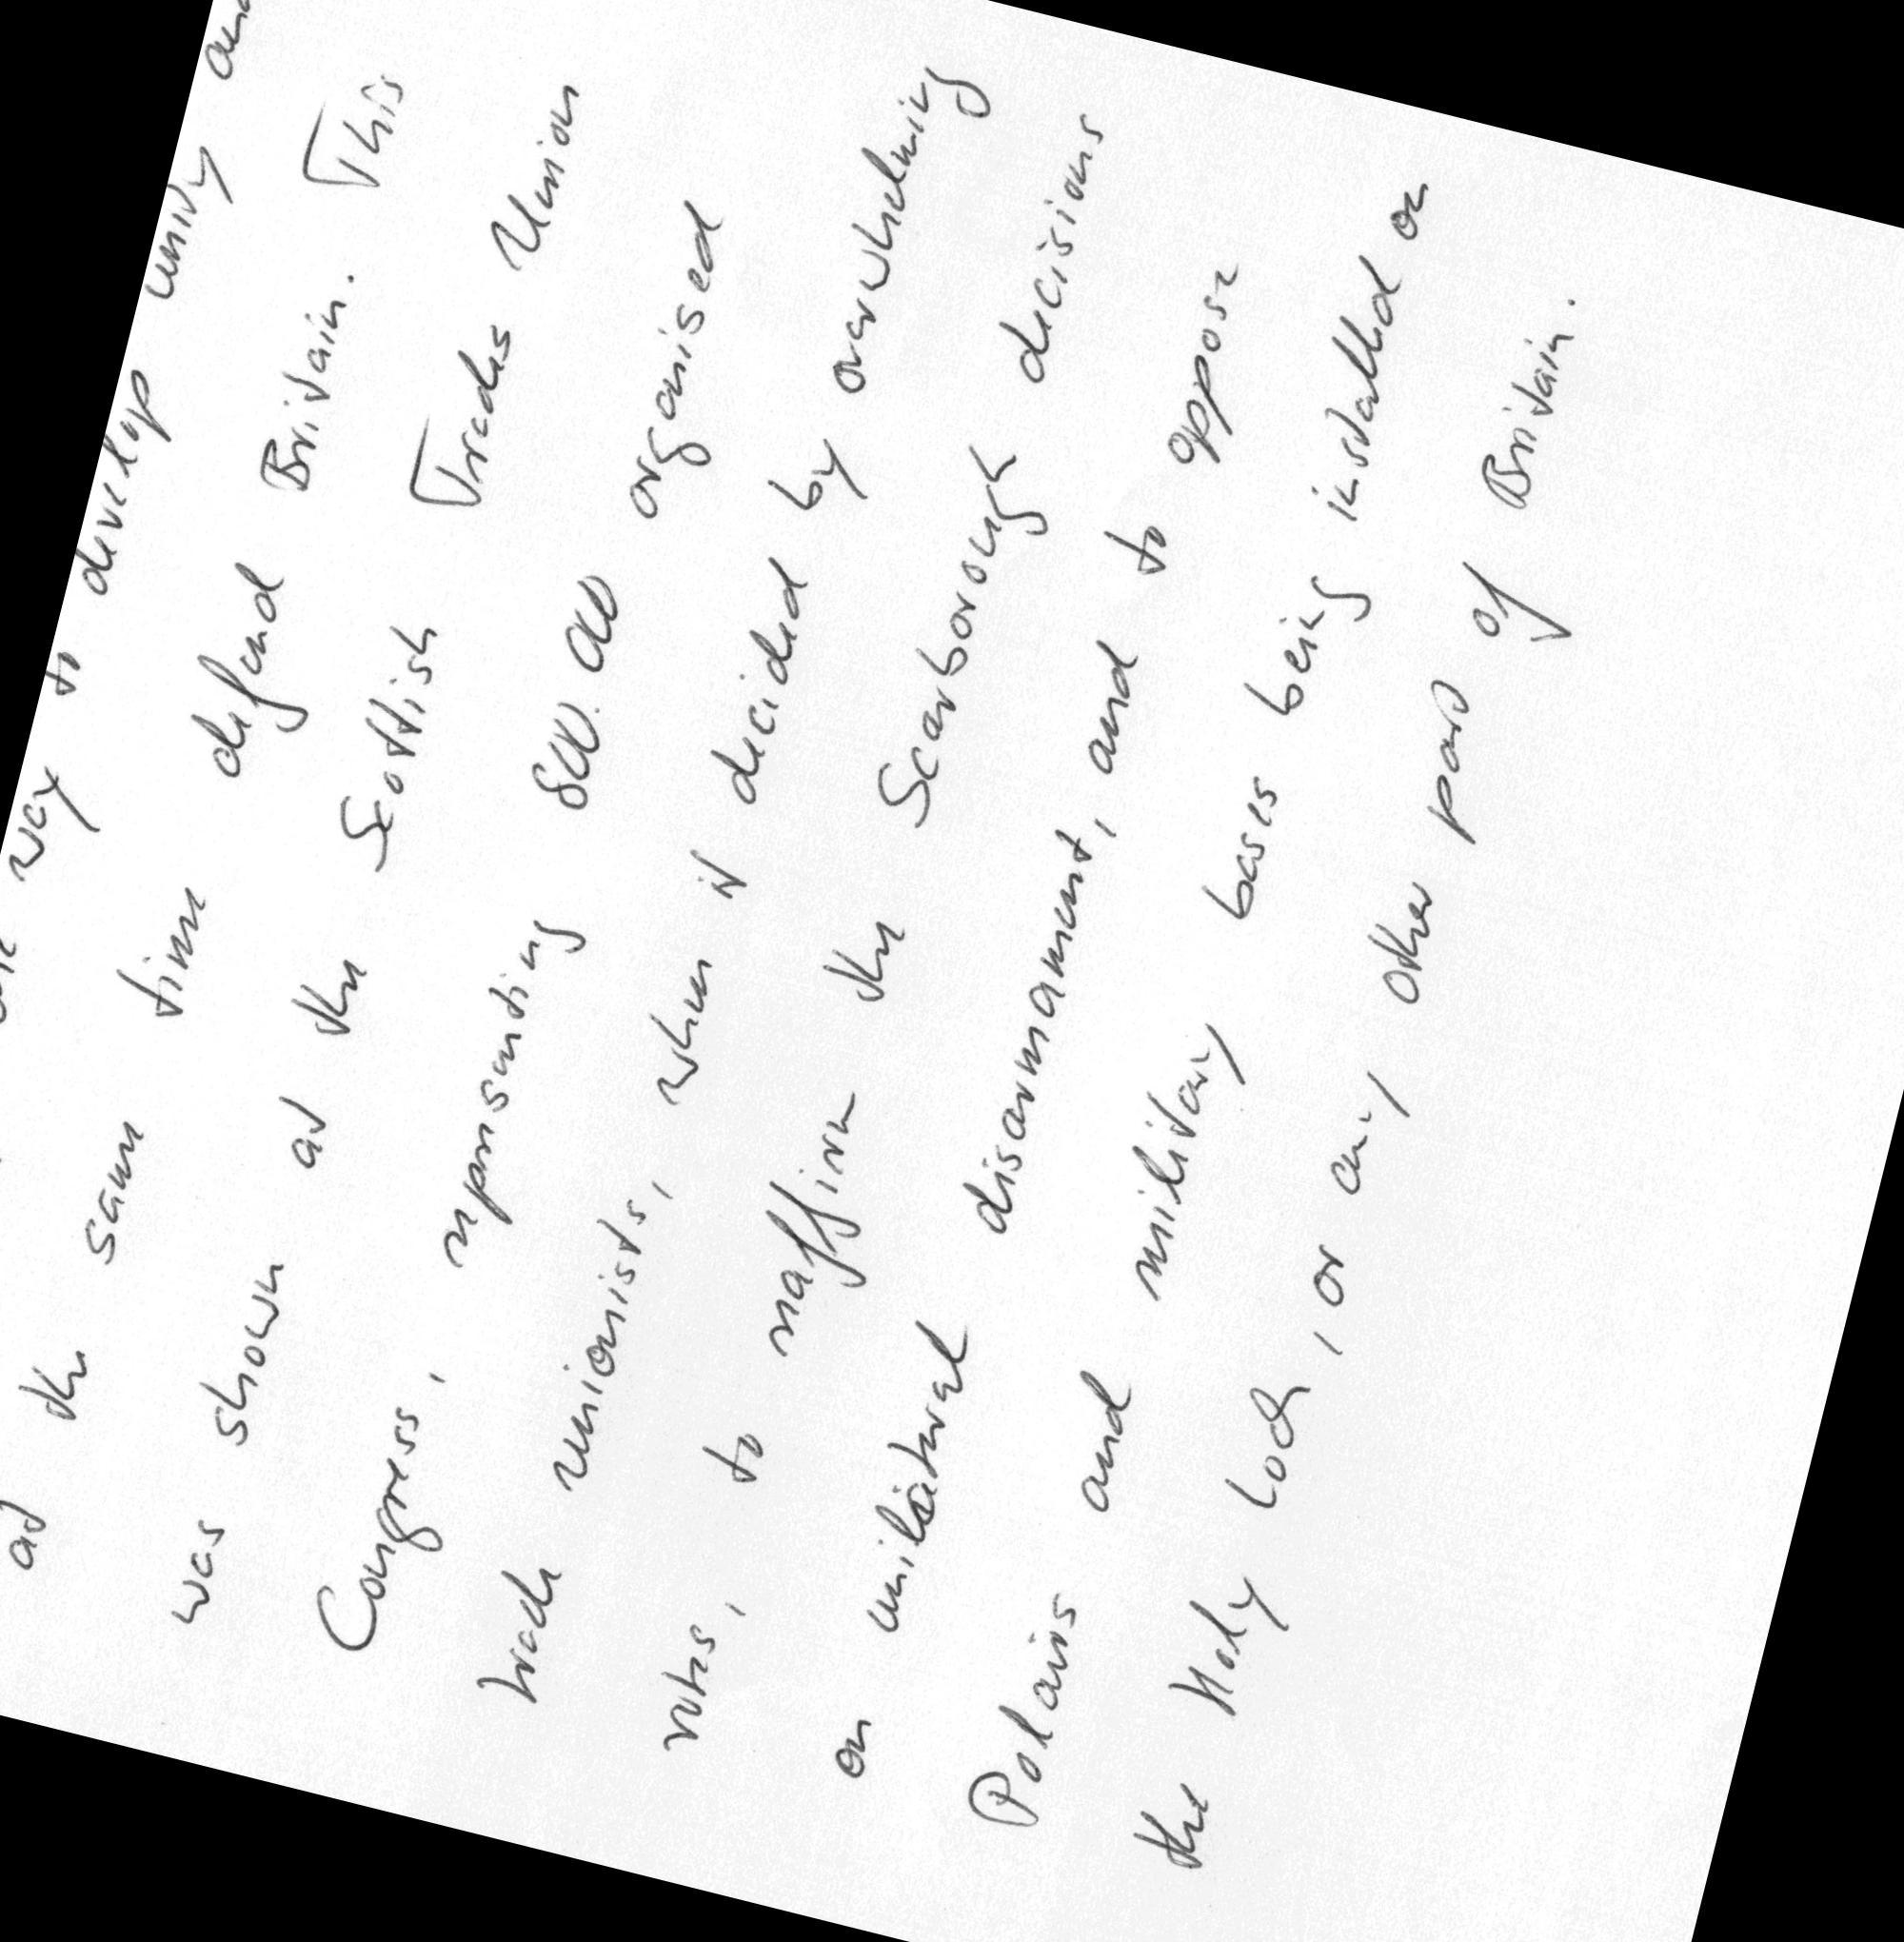 way to develop unity and
at the same time defend Britain. This
was shown at the Scottish Trades Union
Congress, representing 800.000 organised
trade unionists, when it decided by overwhelming
votes, to reaffirm the Scarborough decisions
on unilateral disarmament, and to oppose
Polaris and military bases being installed on
the Holy Loch, or any other part of Britain.